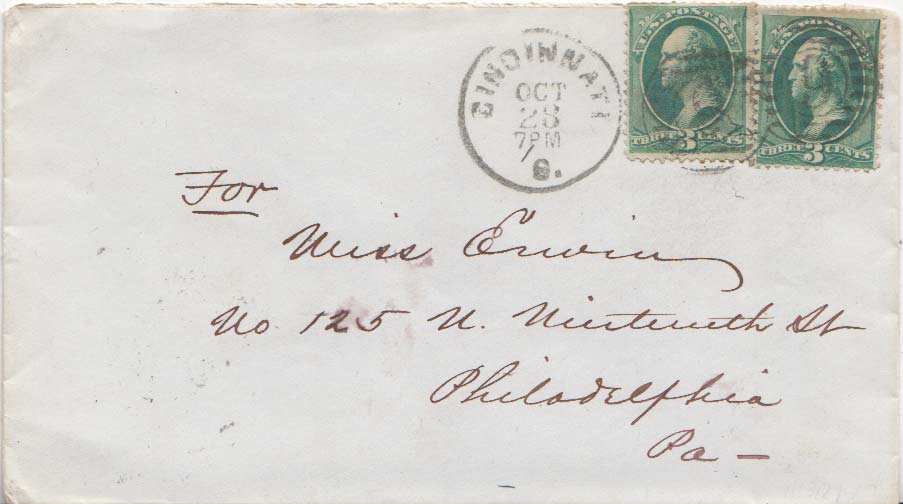 U.S. POSTAGE
THREE 3 CENTS
U.S. POSTAGE
THREE 3 CENTS
CINCINNATI
OCT
28
7PM
O.
For
Miss Erwin
No 125 N. Nineteenth St
Philadelphia
Pa –